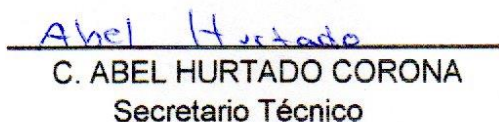 Abel Hurtado
C. ABEL HURTADO CORONA
Secretario Técnico